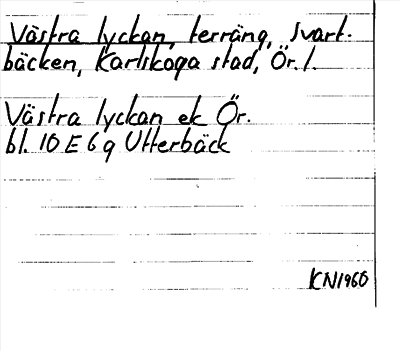 Västra lyckan, terräng, Svart-
bäcken, Karlskoga stad, Ör. l.
Västra lyckan ek Ör.
bl. 10 E 6 g Utterbäck
KN1960